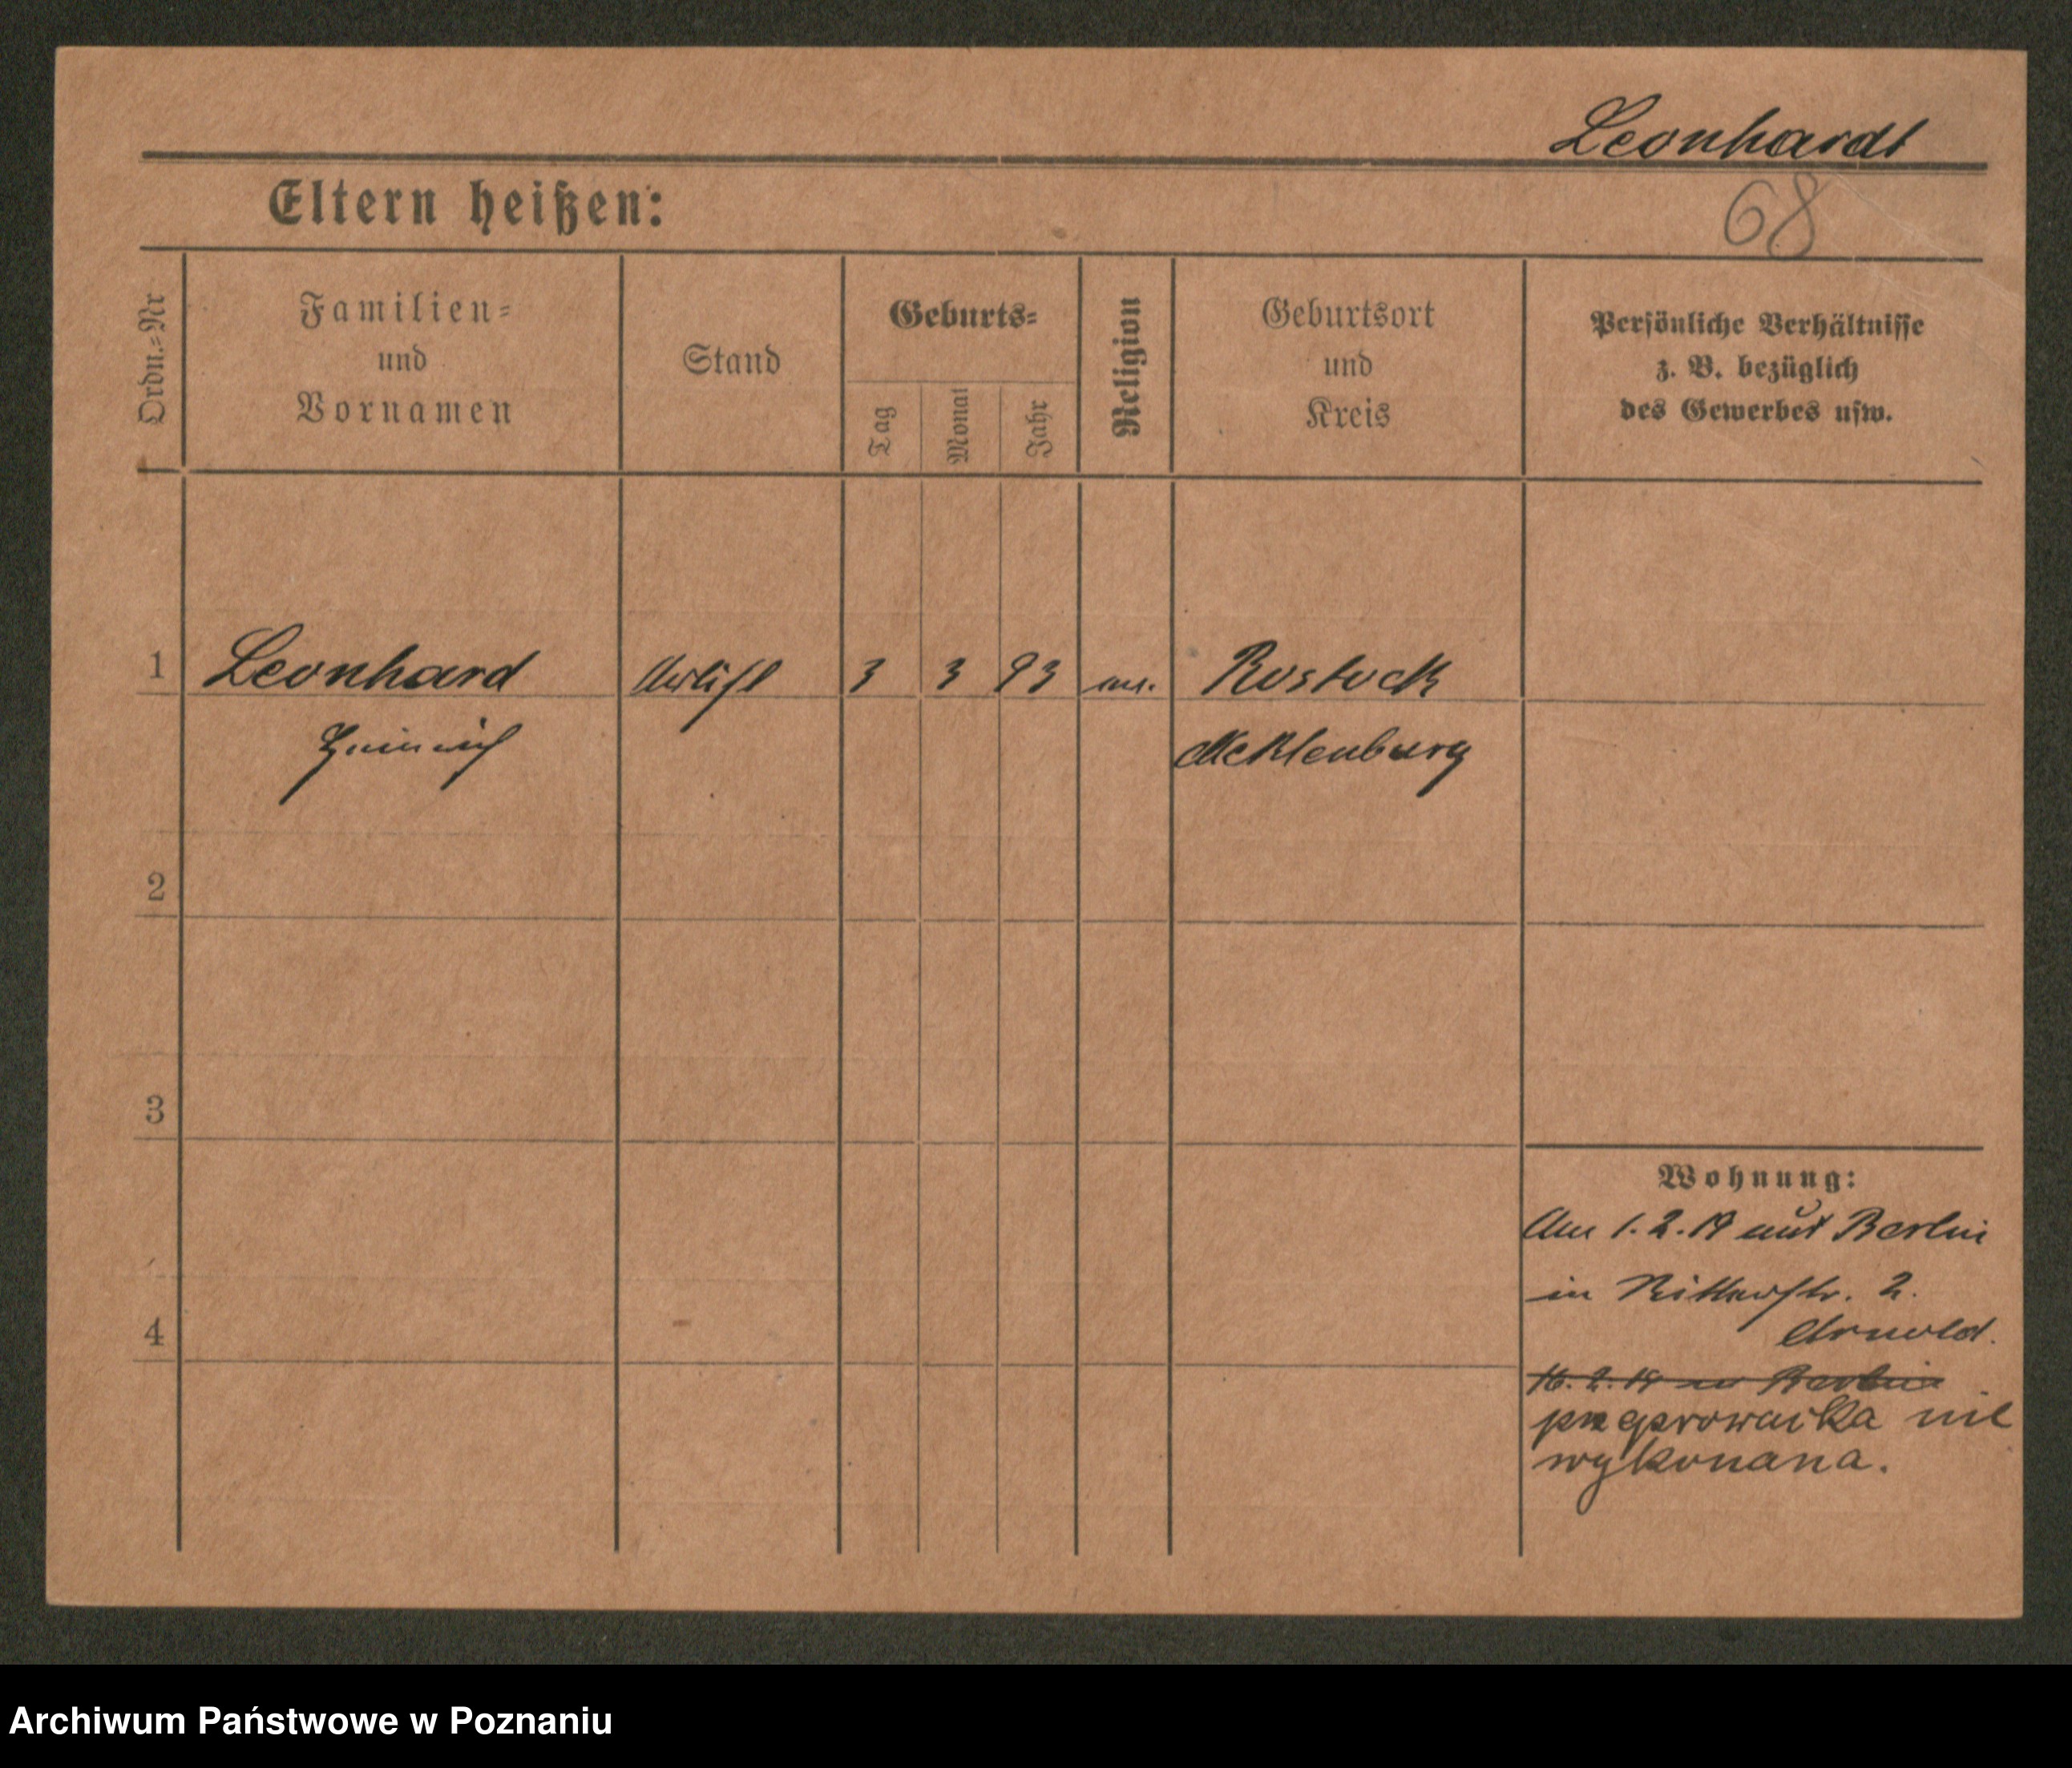 Leonhardt
Eltern heißen:
68
Ordn.-Nr
Familien-
und
Vornamen
Stand
Geburts-
Tag
Monat
Jahr
Religion
Geburtsort
und
Kreis
Persönliche Verhältnisse
z. B. bezüglich
des Gewerbes usw.
1 Leonhard Artist 3 3 93 Rostock
Heinrich Meklenburg
2
3
4
Wohnung:
Am 1.2.19 aus Berlin
in Ritterstr. 2.
Arnold.
16.2.19 n Berlin
przeprowadzka nie
wykonana.
Archiwum Państwowe w Poznaniu